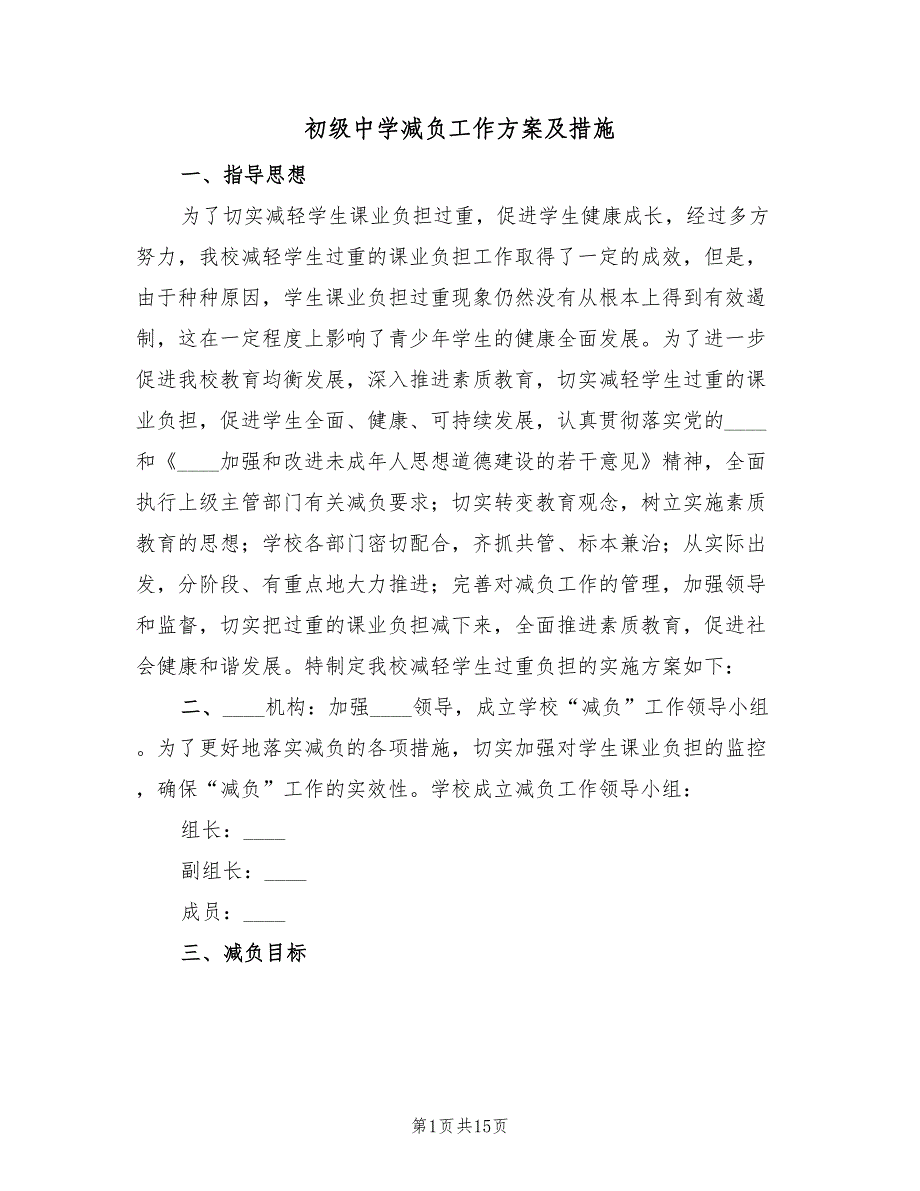 初级中学减负工作方案及措施
一、指导思想
为了切实减轻学生课业负担过重，促进学生健康成长，经过多方
努力，我校减轻学生过重的课业负担工作取得了一定的成效，但是，
由于种种原因，学生课业负担过重现象仍然没有从根本上得到有效遏
制，这在一定程度上影响了青少年学生的健康全面发展。为了进一步
促进我校教育均衡发展，深入推进素质教育，切实减轻学生过重的课
业负担，促进学生全面、健康、可持续发展，认真贯彻落实党的____
和《____加强和改进未成年人思想道德建设的若干意见》精神，全面
执行上级主管部门有关减负要求；切实转变教育观念，树立实施素质
教育的思想；学校各部门密切配合，齐抓共管、标本兼治；从实际出
发，分阶段、有重点地大力推进；完善对减负工作的管理，加强领导
和监督，切实把过重的课业负担减下来，全面推进素质教育，促进社
会健康和谐发展。特制定我校减轻学生过重负担的实施方案如下：
二、____机构：加强____领导，成立学校“减负”工作领导小组
。为了更好地落实减负的各项措施，切实加强对学生课业负担的监控
，确保“减负”工作的实效性。学校成立减负工作领导小组：
组长：____
副组长：____
成员：____
三、减负目标
第1页共15页